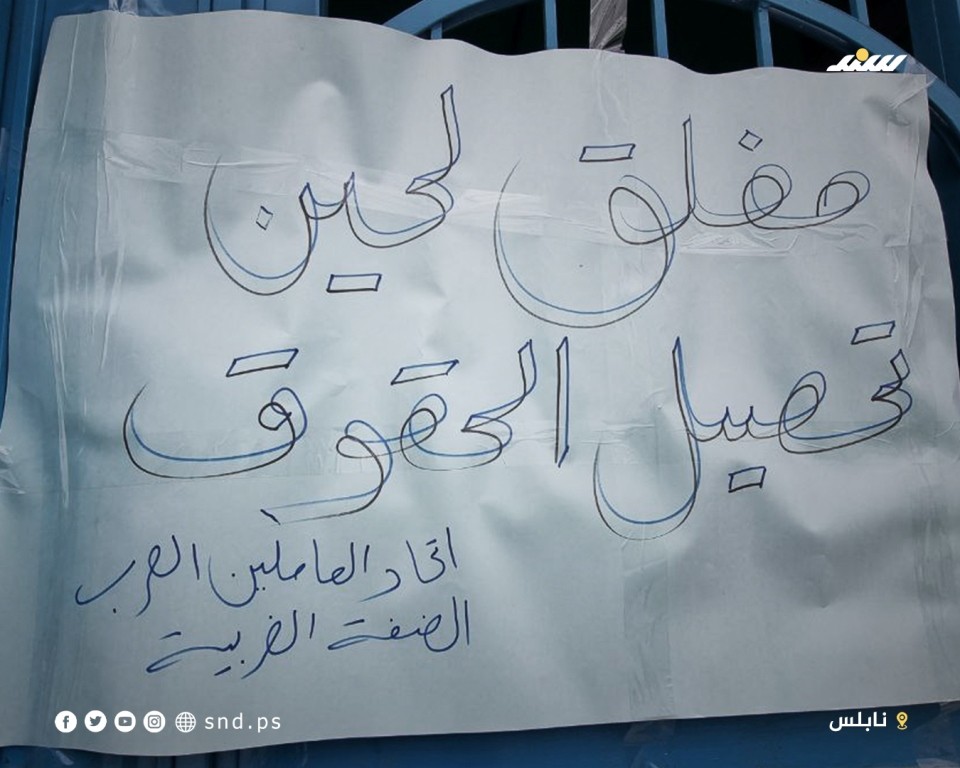 سند
مغلق لحين
تحصيل الحقوق
اتحاد العاملين العرب
الضفة الغربية
snd.ps
نابلس